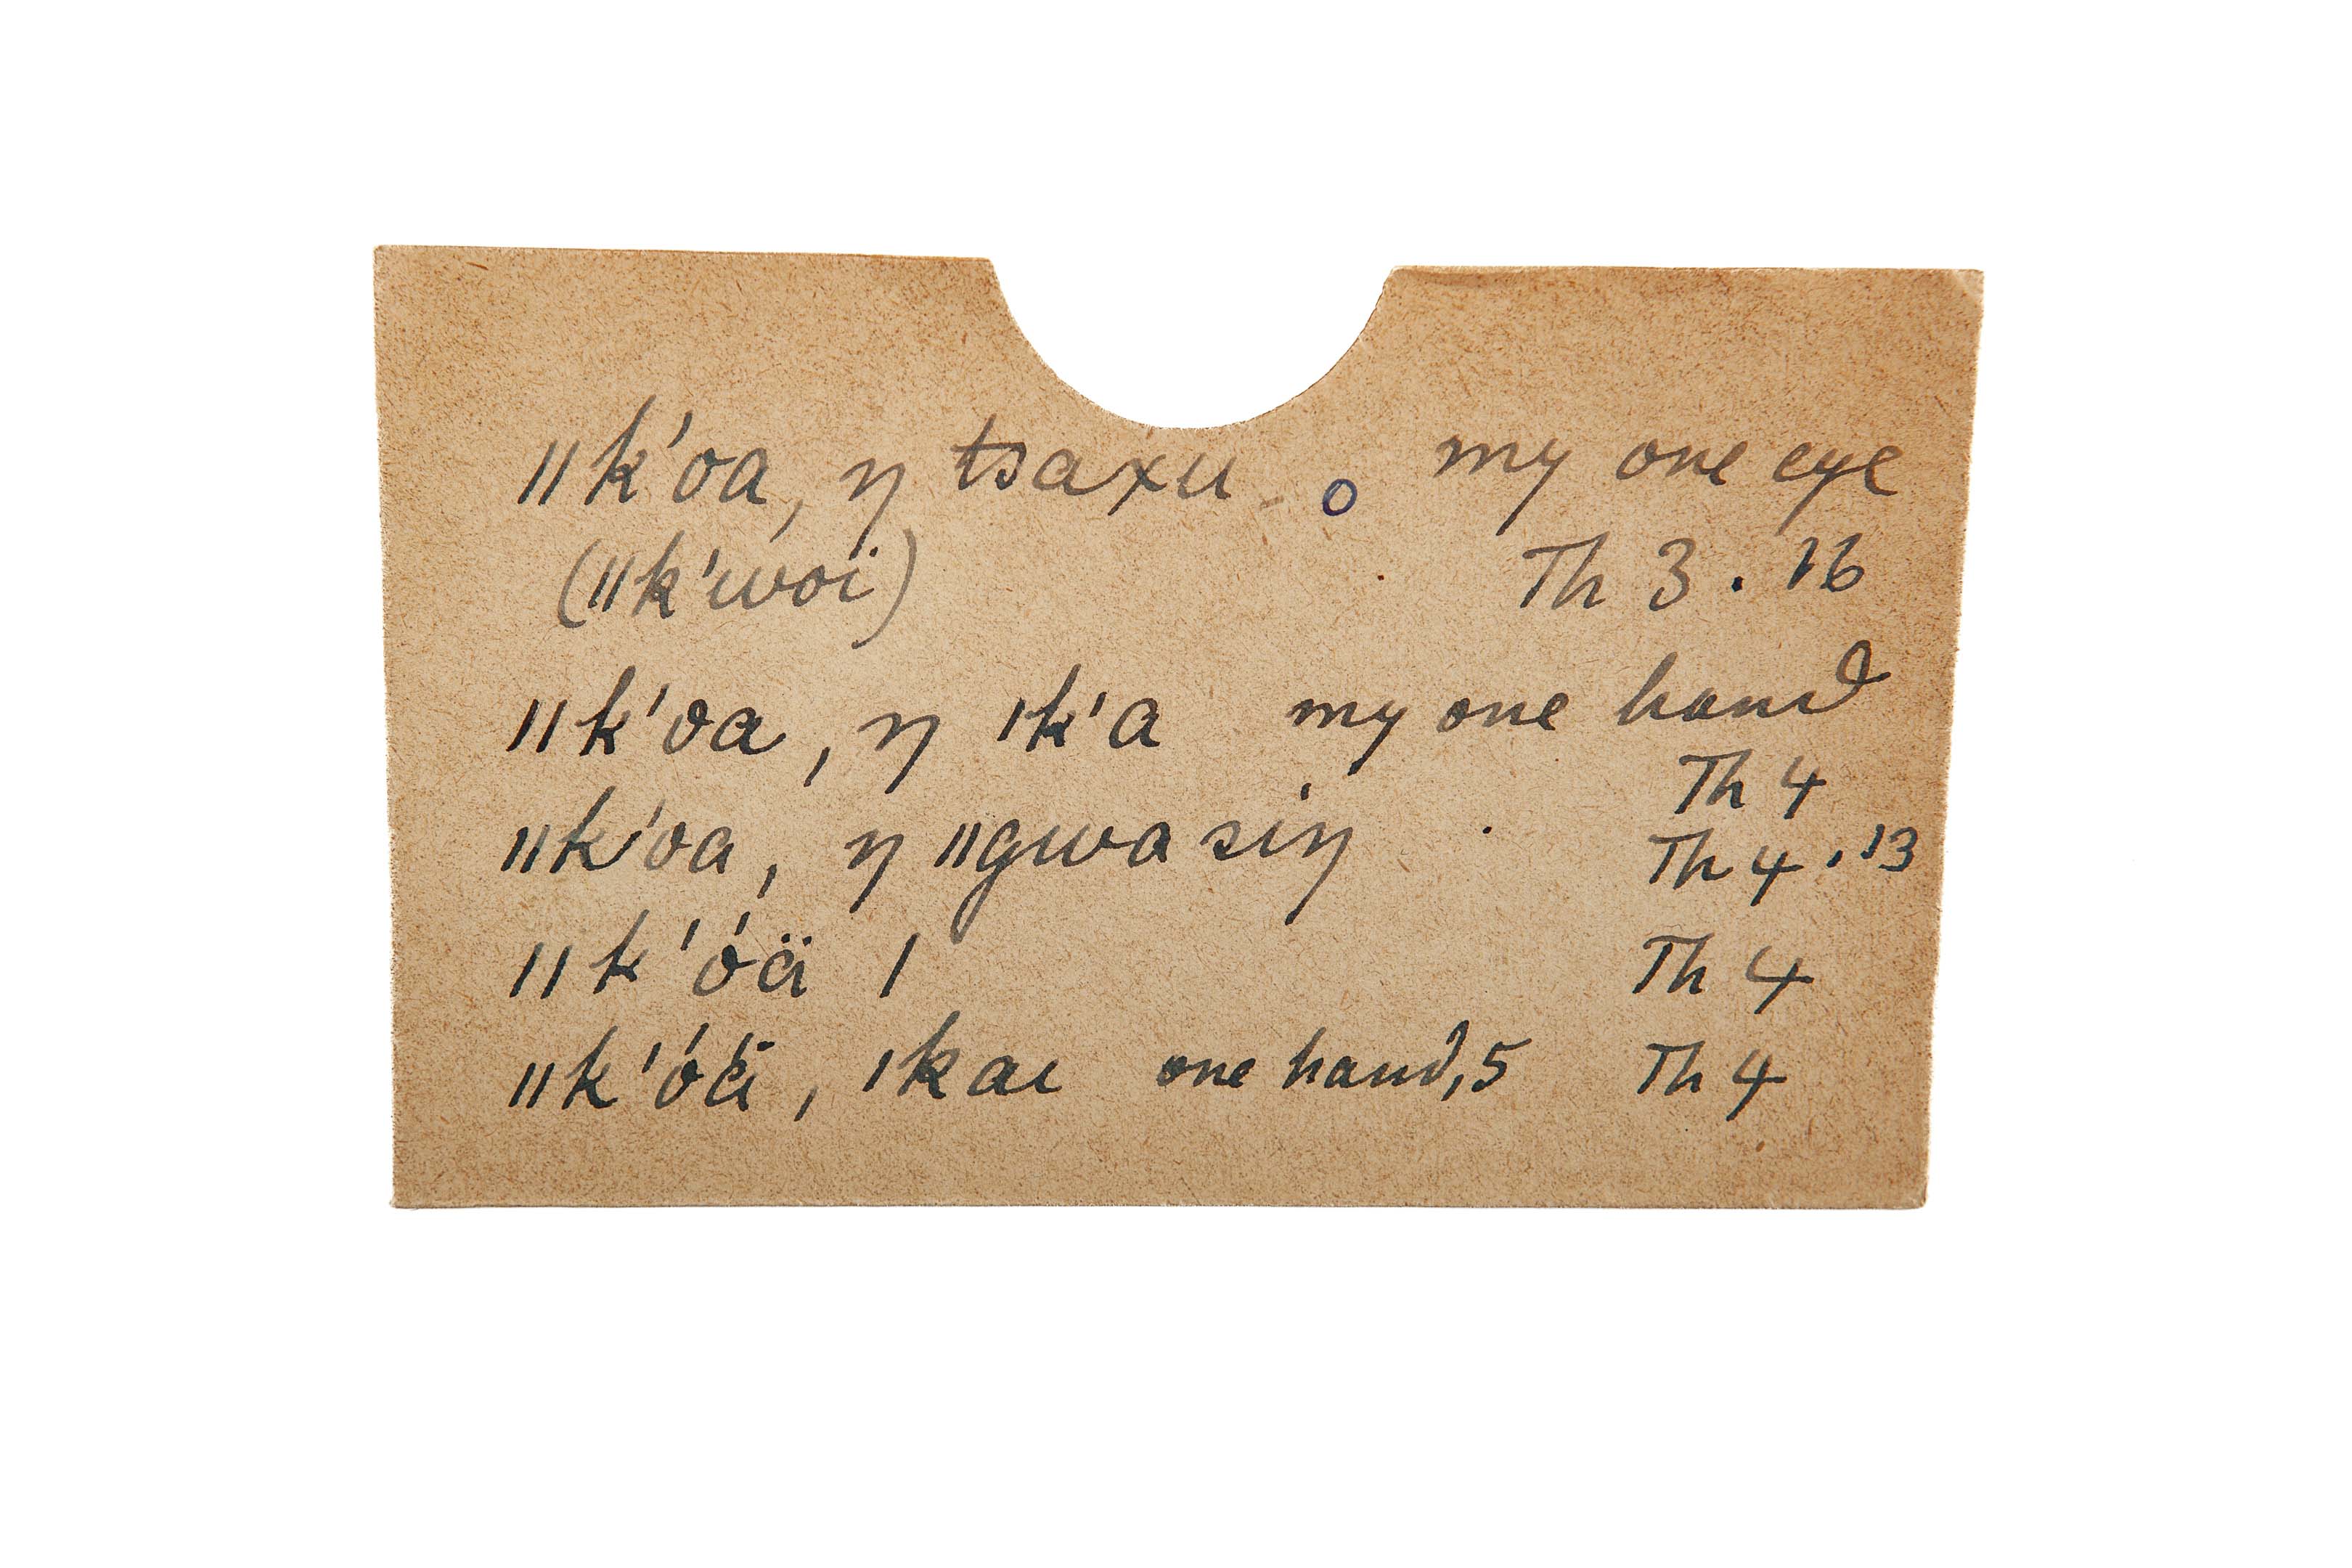 ǁk'oa, ŋ tsaxu . my one eye
(ǁk'woï) Th 3 . 16
ǁk'oa, ŋ ǀk'a my one hand
Th 4
ǁk'oa, ŋ ǁgwa siŋ . Th 4 . 13
ǁk'óä ǀ Th 4
ǁk'óä, ǀkaι one hand, 5 Th 4